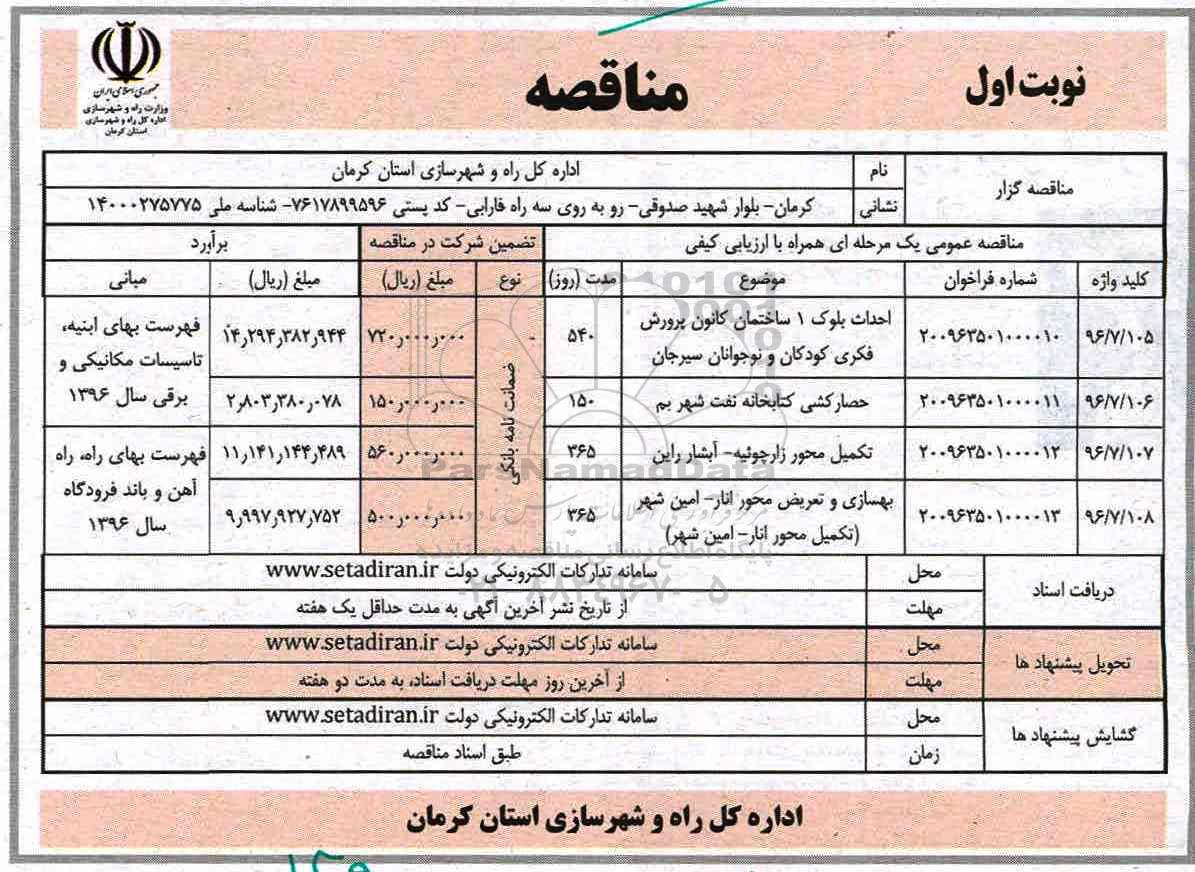 نوبت اول
مناقصه
جمهوری اسلامی ایران
وزارت راه و شهرسازی
اداره کل راه و شهرسازی
استان کرمان
مناقصه گزار
نام
اداره کل راه و شهرسازی استان کرمان
نشانی
کرمان- بلوار شهید صدوقی- رو به روی سه راه فارابی- کد پستی ۷۶۱۷۸۹۹۵۹۶- شناسه ملی ۱۴۰۰۰۲۷۵۷۷۵
مناقصه عمومی یک مرحله ای همراه با ارزیابی کیفی
تضمین شرکت در مناقصه
برآورد
کلید واژه
شماره فراخوان
موضوع
مدت (روز)
نوع
مبلغ (ریال)
مبلغ (ریال)
مبانی
۹۶/۷/۱۰۵
۲۰۰۹۶۳۵۰۱۰۰۰۰۱۰
احداث بلوک ۱ ساختمان کانون پرورش
فکری کودکان و نوجوانان سیرجان
۵۴۰
ضمانت نامه بانکی
۷۲۰٫۰۰۰٫۰۰۰
۱۴٫۲۹۴٫۳۸۲٫۹۴۴
فهرست بهای ابنیه،
تاسیسات مکانیکی و
برقی سال ۱۳۹۶
۹۶/۷/۱۰۶
۲۰۰۹۶۳۵۰۱۰۰۰۰۱۱
حصارکشی کتابخانه نفت شهر بم
۱۵۰
۱۵۰٫۰۰۰٫۰۰۰
۲٫۸۰۳٫۳۸۰٫۰۷۸
۹۶/۷/۱۰۷
۲۰۰۹۶۳۵۰۱۰۰۰۰۱۲
تکمیل محور زارچوئیه- آبشار راین
۳۶۵
۵۶۰٫۰۰۰٫۰۰۰
۱۱٫۱۴۱٫۱۴۴٫۴۸۹
فهرست بهای راه، راه
آهن و باند فرودگاه
سال ۱۳۹۶
۹۶/۷/۱۰۸
۲۰۰۹۶۳۵۰۱۰۰۰۰۱۳
بهسازی و تعریض محور انار- امین شهر
(تکمیل محور انار- امین شهر)
۳۶۵
۵۰۰٫۰۰۰٫۰۰۰
۹٫۹۹۷٫۹۳۷٫۷۵۲
ParsNamadData
پایگاه اطلاع رسانی مناقصه و مزایده
۰۲۱-۸۸۳۴۹۶۷۰-۵
دریافت اسناد
محل
سامانه تدارکات الکترونیکی دولت www.setadiran.ir
مهلت
از تاریخ نشر آخرین آگهی به مدت حداقل یک هفته
تحویل پیشنهاد ها
محل
سامانه تدارکات الکترونیکی دولت www.setadiran.ir
مهلت
از آخرین روز مهلت دریافت اسناد، به مدت دو هفته
گشایش پیشنهاد ها
محل
سامانه تدارکات الکترونیکی دولت www.setadiran.ir
زمان
طبق اسناد مناقصه
اداره کل راه و شهرسازی استان کرمان